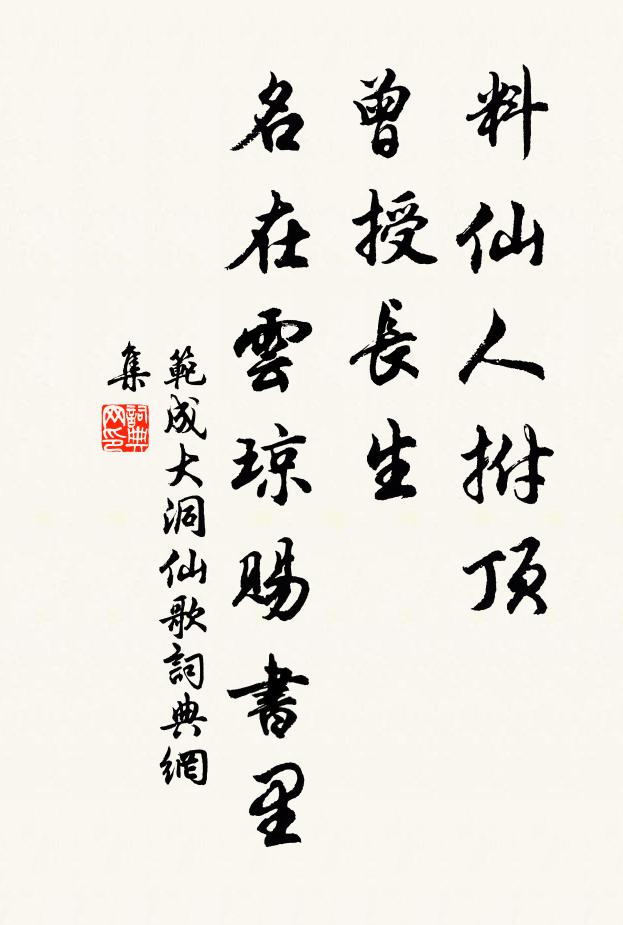 料仙人拊頂
曾授長生
名在雲琼賜書里
範成大洞仙歌詞典網
集
詞典
网印